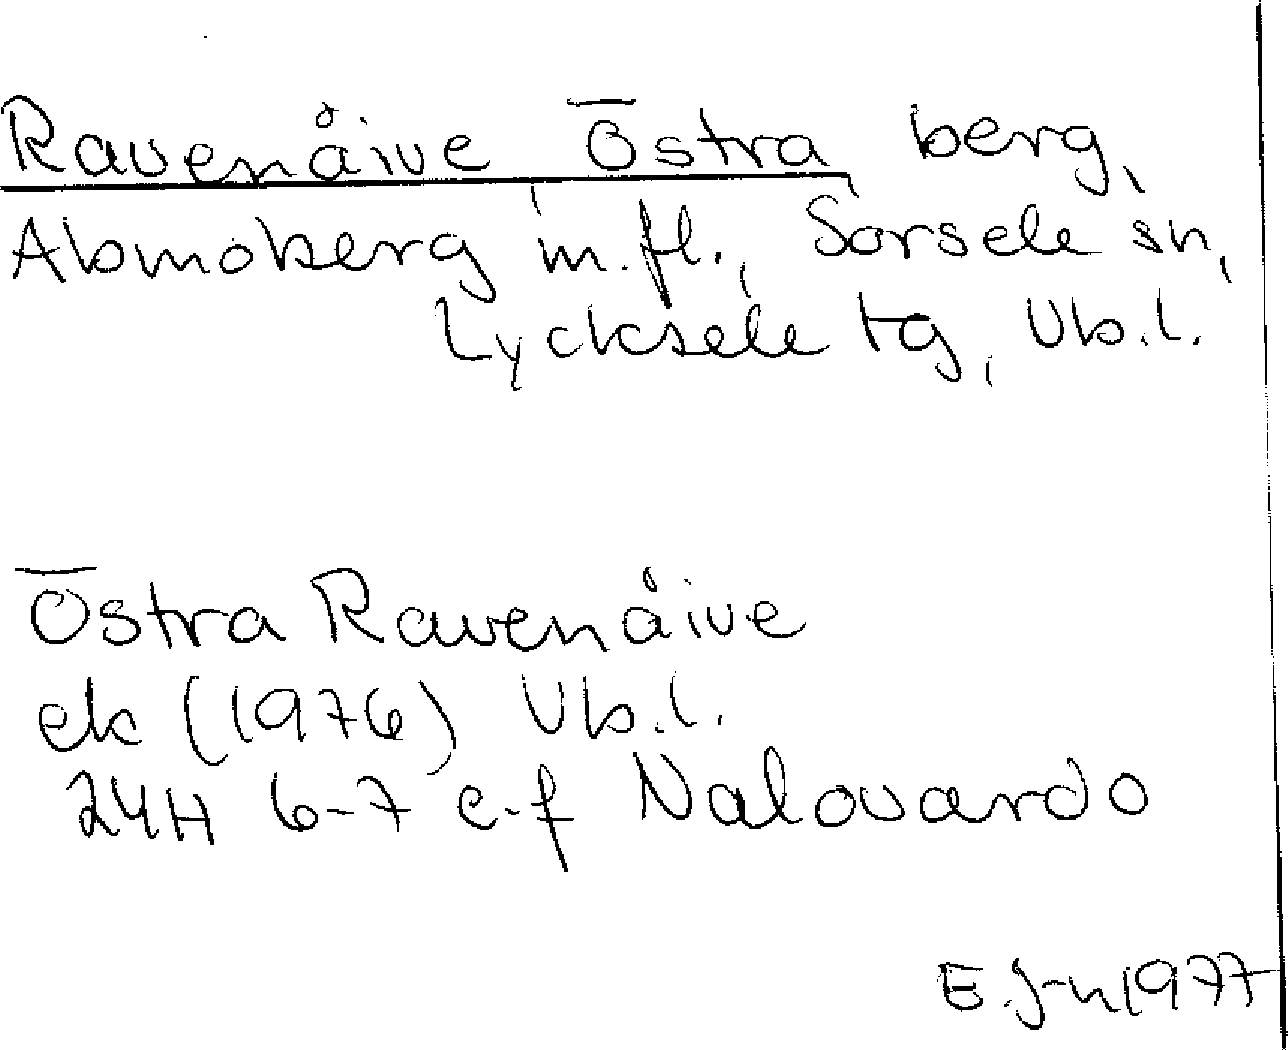 Ravenåive Östra berg,
Abmoberg m.fl., Sorsele sn,
Lycksele tg, Vb.l.
Östra Ravenåive
ek (1976) Vb.l.
24H 6-7 e-f Nalovardo
E.J-n 1977